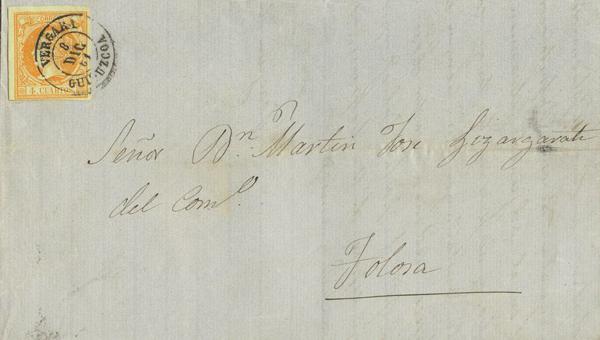 VERGARA
8
DIC
61
GUIPUZCOA
4 CUARTOS
Señor Dn. Martin Jose Lizargarate
del Comº.
Tolosa